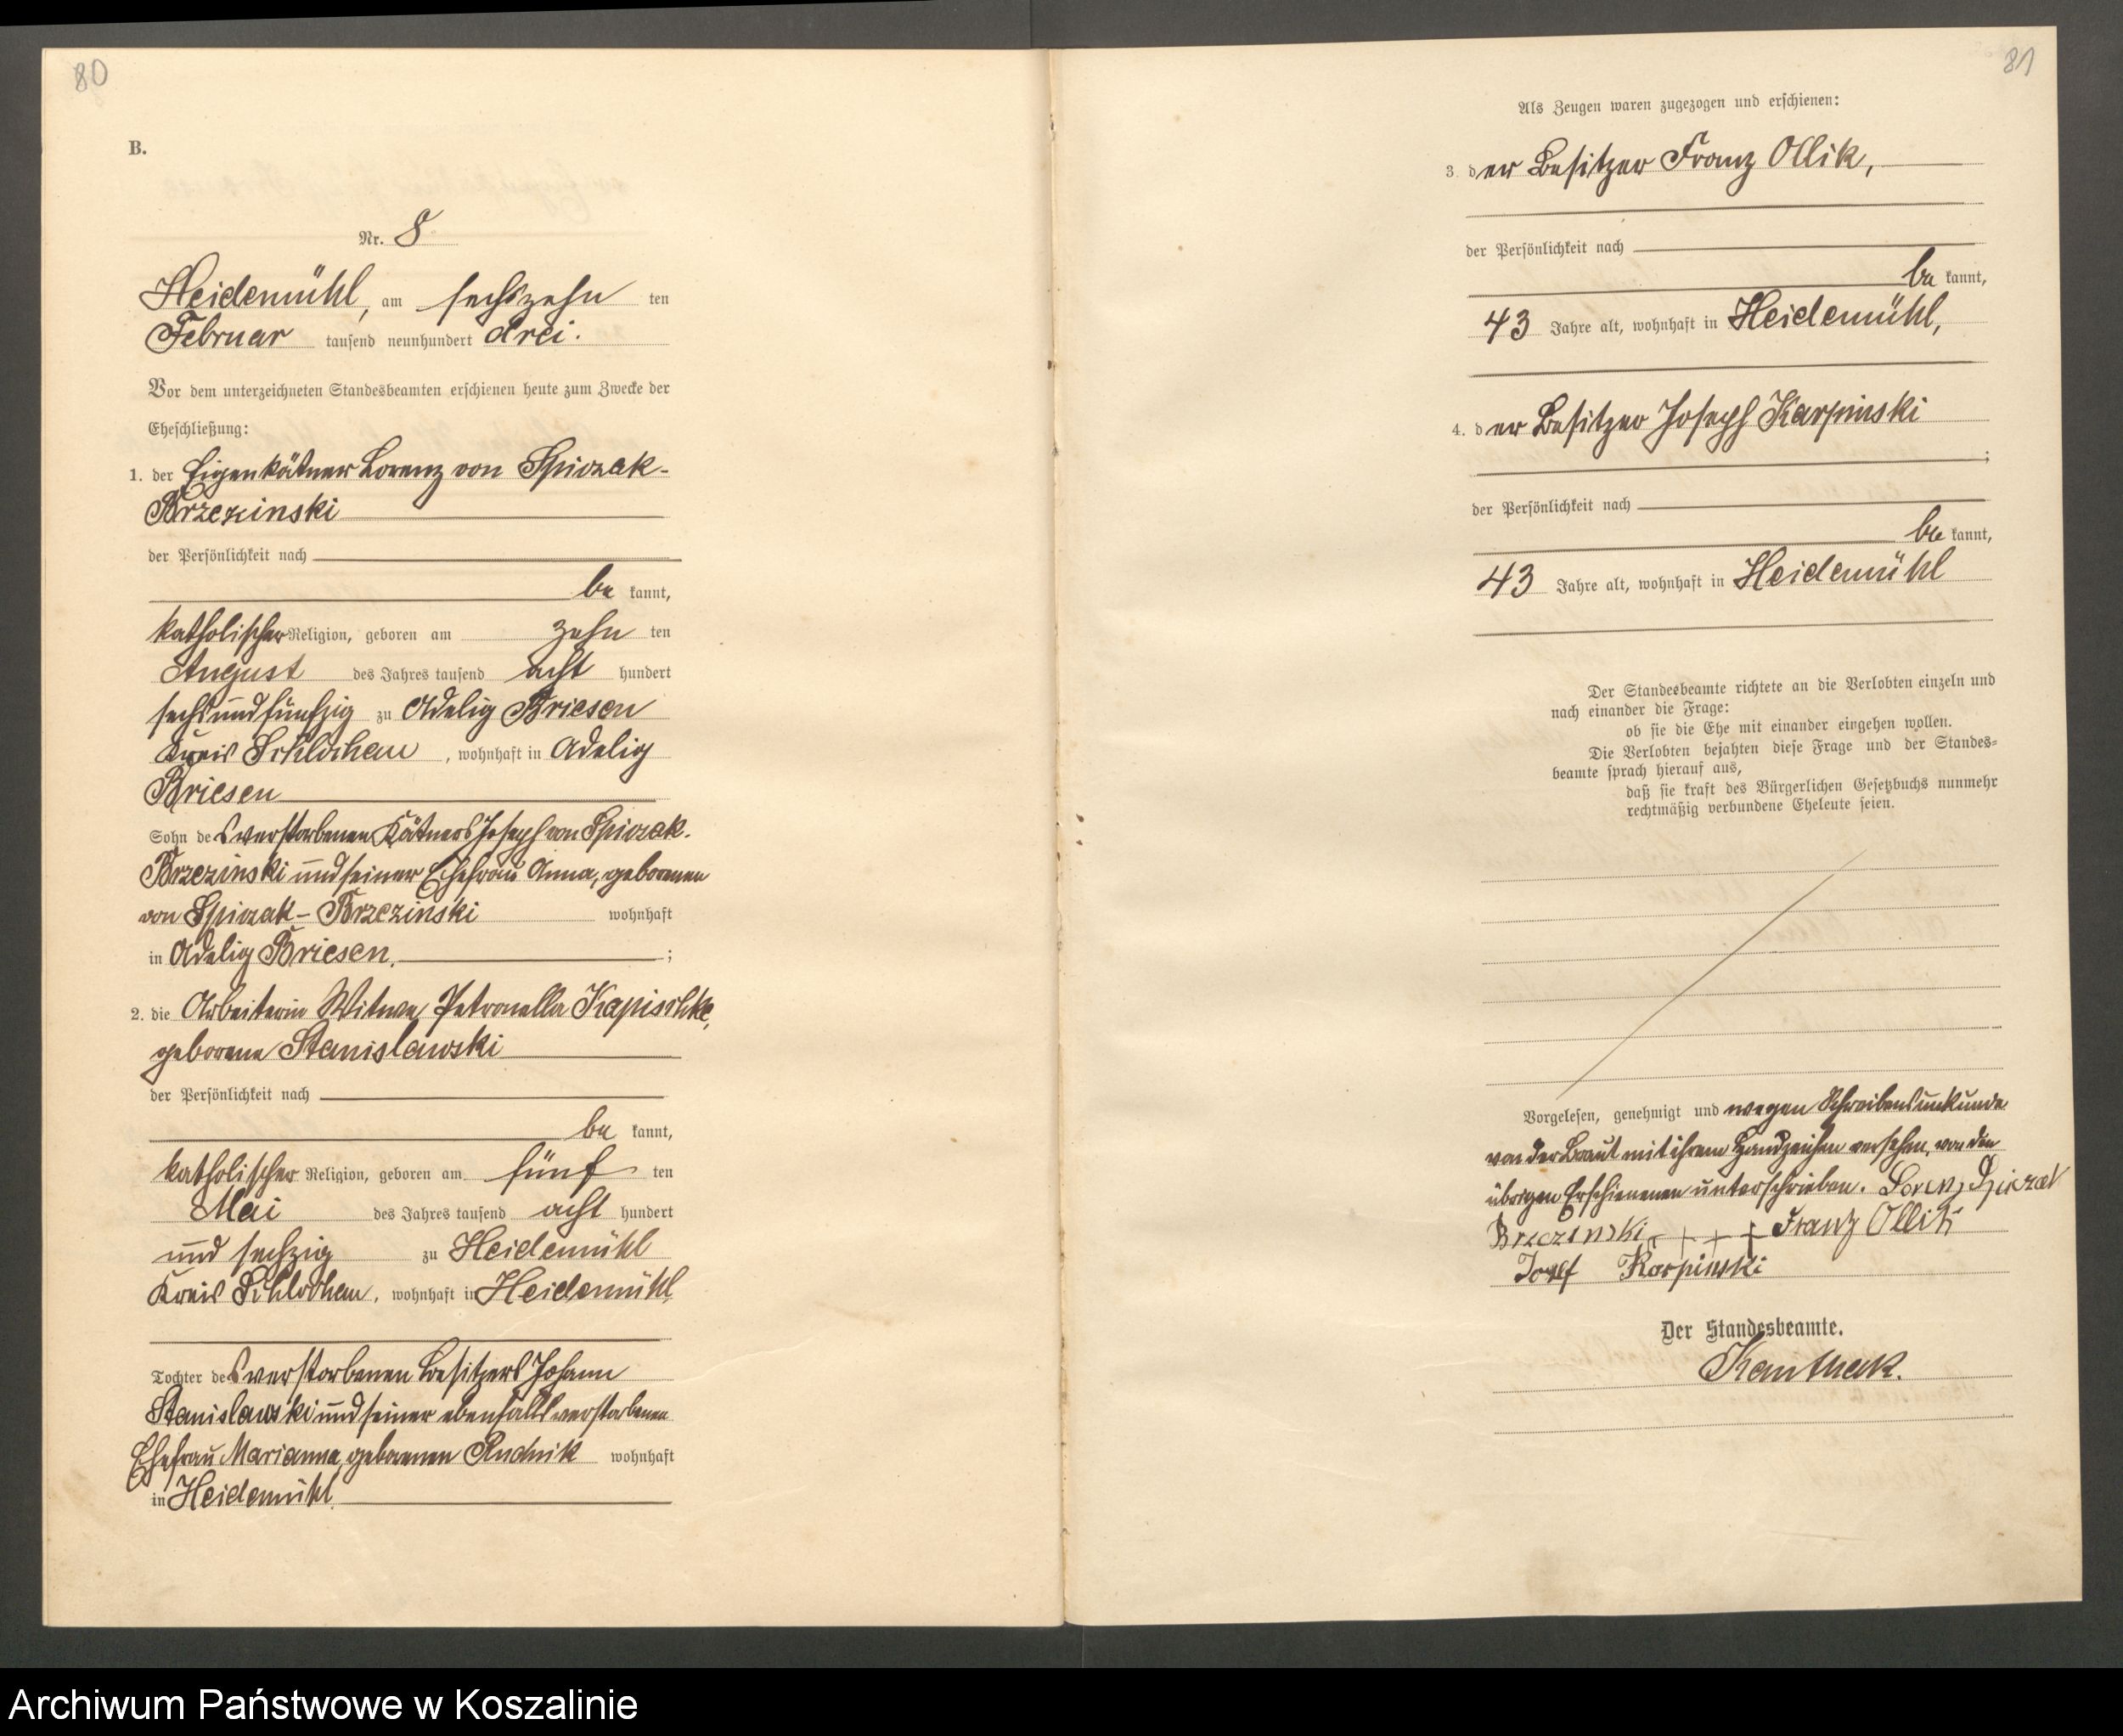 80
B.
Nr. 8
Heidemühl, am sechszehn ten
Februar tausend neunhundert drei.
Vor dem unterzeichneten Standesbeamten erschienen heute zum Zwecke der
Eheschließung:
1. der Eigenkätner Lorenz von Spiczak-
Brzezinski
der Persönlichkeit nach
be kannt,
katholischer Religion, geboren am zehn ten
August des Jahres tausend acht hundert
sechsundfünfzig zu Adelig Briesen
Kreis Schlochau, wohnhaft in Adelig
Briesen
Sohn des verstorbenen Kätners Joseph von Spiczak-
Brzezinski und seiner Ehefrau Anna, geborenen
von Spiczak-Brzezinski wohnhaft
in Adelig Briesen. ;
2. die Arbeiterin Witwe Petronella Kapischke,
geborene Stanislawski
der Persönlichkeit nach
be kannt,
katholischer Religion, geboren am fünf ten
Mai des Jahres tausend acht hundert
und sechzig zu Heidemühl
Kreis Schlochau, wohnhaft in Heidemühl,
Tochter des verstorbenen Besitzers Johann
Stanislawski und seiner ebenfalls verstorbenen
Ehefrau Marianna, geborenen Rudnik wohnhaft
in Heidemühl.
81
Als Zeugen waren zugezogen und erschienen:
3. der Besitzer Franz Ollik,
der Persönlichkeit nach
be kannt,
43 Jahre alt, wohnhaft in Heidemühl,
4. der Besitzer Joseph Karpinski
;
der Persönlichkeit nach
be kannt,
43 Jahre alt, wohnhaft in Heidemühl
Der Standesbeamte richtete an die Verlobten einzeln und
nach einander die Frage:
ob sie die Ehe mit einander eingehen wollen.
Die Verlobten bejahten diese Frage und der Standes-
beamte sprach hierauf aus,
daß sie kraft des Bürgerlichen Gesetzbuchs nunmehr
rechtmäßig verbundene Eheleute seien.
Vorgelesen, genehmigt und wegen Schreibensunkunde
von der Braut mit ihrem Handzeichen versehen, von den
übrigen Erschienenen unterschrieben. Lorenz Spiczak
Brzezinski + + + Franz Ollik
Josef Karpinski
Der Standesbeamte.
Kanthak.
Archiwum Państwowe w Koszalinie